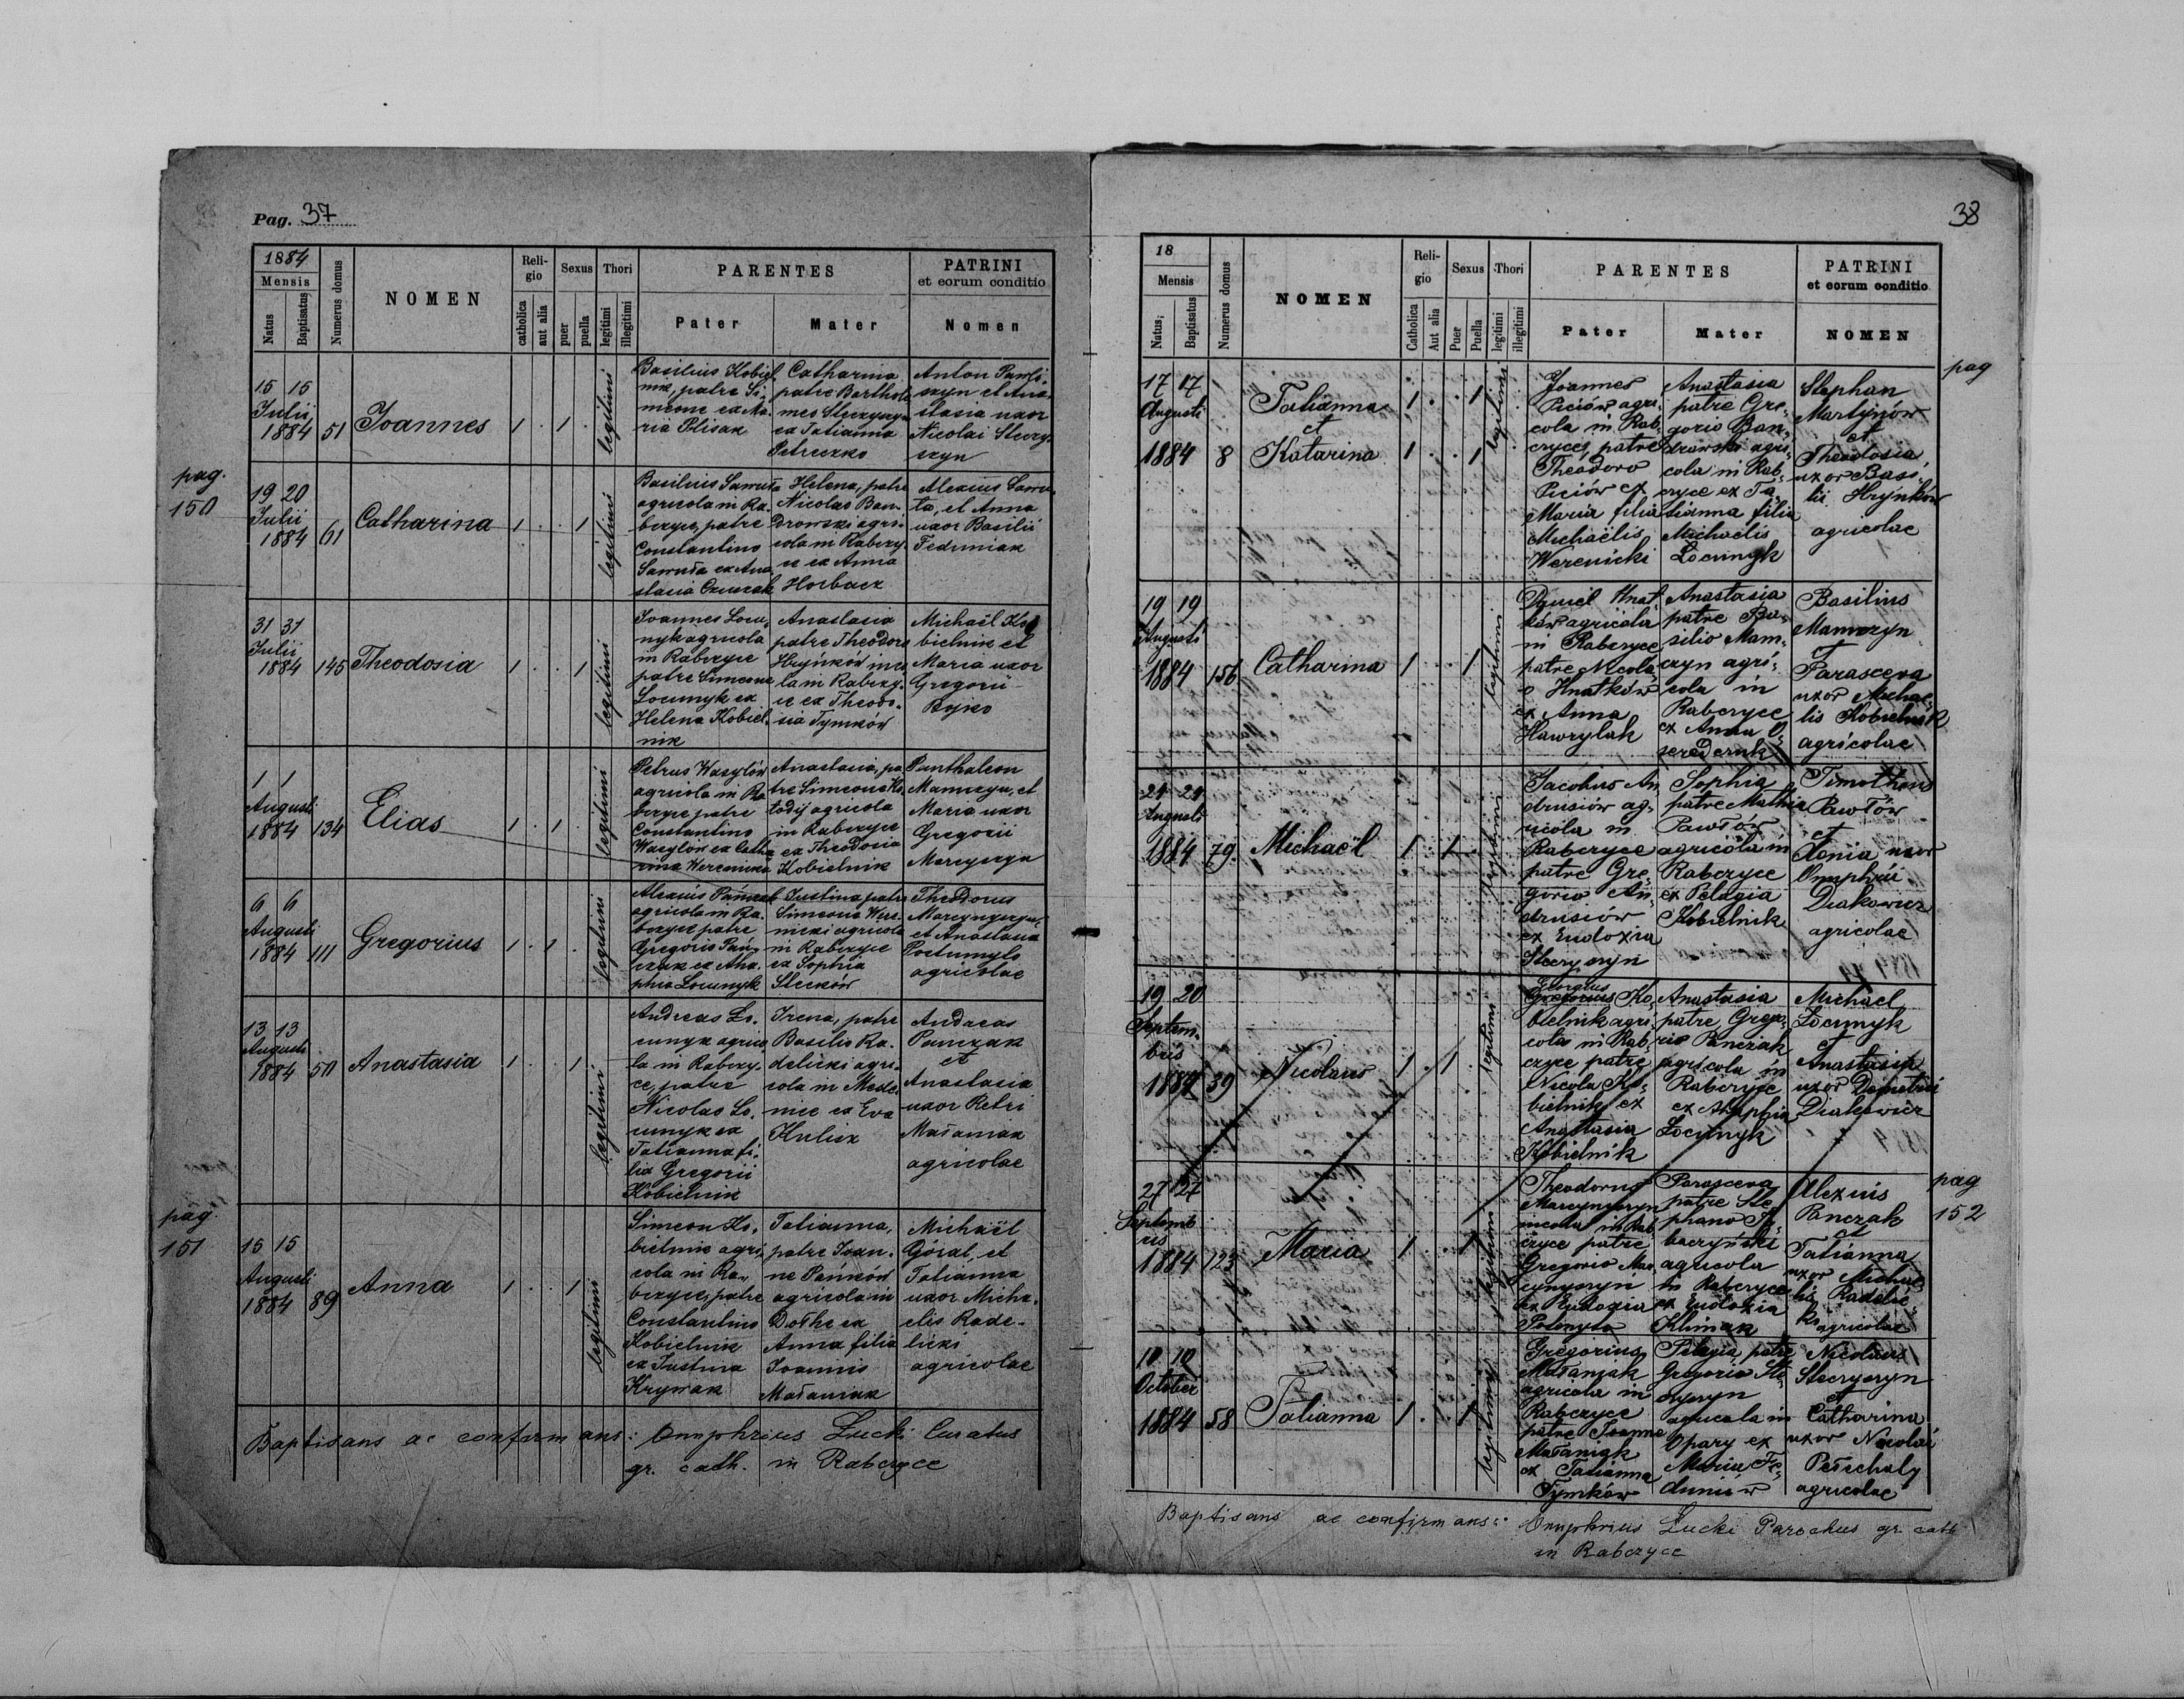 Pag. 37
1884
Mensis
Natus
Baptisatus
Numerus domus
NOMEN
Religio
catholica
aut alia
Sexus
puer
puella
Thori
legitimi
illegitimi
PARENTES
Pater
Mater
PATRINI
et eorum conditio
Nomen
15 15
Julii
1884
51
Joannes
1 . 1 .
legitimi
Basilius Kobiel-
nik, patre Si-
meone ex Ma-
ria Plisak
Catharina
patre Bartholo
meo Steczyszyn
ex Tatianna
Petryczko
Anton Pawli-
szyn et Ana-
stasia uxor
Nicolai Steczy-
szyn
pag.
150
19 20
Julii
1884
61
Catharina
1 . . 1
legitimi
Basilius Sawuła
agricola in Ra-
bczyce, patre
Constantino
Sawuła ex Ana
stasia
Helena, patre
Nicolao Ban-
drowski agri-
cola in Rabczy-
ce ex Anna
Horbacz
Alexius Sawu-
ła, et Anna
uxor Basilii
Feduniak
31 31
Julii
1884
145
Theodosia
1 . . 1
legitimi
Joannes Łocu-
nyk agricola
in Rabczyce
patre Simeone
Łocunyk ex
Helena Kobiel-
nik
Anastasia
patre Theodoro
Hryńków inco
la in Rabczy-
ce ex Theodo-
sia Tymków
Michaël Ko
bielnik et
Maria uxor
Gregorii
Bojko
1 1
Augusti
1884
134
Elias
1 . 1 .
legitimi
Petrus Wasylów
agricola in Ra
bczyce patre
Constantino
Wasylów ex Catha
rina Werenicka
Anastasia, pa
tre Simeone Ko
łodij agricola
in Rabczyce
ex Theodosia
Kobielnik
Panthaleon
Mamczyn, et
Maria uxor
Gregorii
Marcyszyn
6 6
Augusti
1884
111
Gregorius
1 . 1 .
legitimi
Alexius Pańczak
agricola in Ra-
bczyce patre
Gregorio Pań-
czak ex Aha-
phia Łocunyk
Justina patre
Simeone Were-
nicki agricola
in Rabczyce
ex Sophia
Stecków
Theodorus
Marcynyszyn,
et Anastasia
agricolae
13 13
Augusti
1884
50
Anastasia
1 . . 1
legitimi
Andreas Ło-
cunyk agrico
la in Rabczy-
ce, patre
Nicolao Ło-
cunyk ex
Tatianna fi-
lia Gregorii
Kobielnik
Irena, patre
Basilio Ra-
delicki agri-
cola in Medle-
nice ex Eva
Kulicz
Andreas
Panczak
et
Anastasia
uxor Petri
Małaniak
agricolae
pag.
151
15 15
Augusti
1884
89
Anna
1 . . 1
legitimi
Simeon Ko-
bielnik agri-
cola in Ra-
bczyce, patre
Constantino
Kobielnik
ex Justina
Krywak
Tatianna,
patre Joan-
ne Pańków
agricola in
Dołhe ex
Anna filia
Joannis
Małaniak
Michaël
Góral, et
Tatianna
uxor Micha-
elis Rade-
licki
agricolae
Baptisans ac confirmans: Onuphrius Lucki Curatus
gr. cath. in Rabczyce
38
18
Mensis
Natus;
Baptisatus
Numerus domus
NOMEN
Religio
Catholica
Aut alia
Sexus
Puer
Puella
Thori
legitimi
illegitimi
PARENTES
Pater
Mater
PATRINI
et eorum conditio
NOMEN
pag
17 17
Augusti
1884
8
Tatianna
et
Katarina
1 . . 1
1 . . 1
legitimi
Joannes
Piciów agri-
cola in Rab-
czyce, patre
Theodoro
Piciów ex
Maria filia
Michaëlis
Werenicki
Anastasia
patre Gre-
gorio Ban-
drowski agri-
cola in Rab-
czyce ex Ta-
tianna filia
Michaëlis
Łocunyk
Stephan
Martynów
et
Theodosia
uxor Basi-
lii Hryńków
agricolae
19 19
Augusti
1884
156
Catharina
1 . . 1
legitimi
Daniel Hnat-
ków agricola
in Rabczyce
patre Nicola-
o Hnatków
ex Anna
Hawrylak
Anastasia
patre Ba-
silio Mam-
czyn agri-
cola in
Rabczyce
ex Anna
Basilius
Mamczyn
et
Parasceva
uxor Michae-
lis Kobielnik
agricolae
29 29
Augusti
1884
79
Michaël
1 . 1 .
legitimi
Jacobus An
drusiów ag-
ricola in
Rabczyce
patre Gre-
gorio An-
drusiów
ex Eudoxia
Steczyszyn
Sophia
patre Mathia
Pawłów
agricola in
Rabczyce
ex Pelagia
Kobielnik
Timotheus
Pawłów
et
Xenia uxor
Onuphrii
Diakowicz
agricolae
19 20
Septem-
bris
1884
39
Nicolaus
1 . 1 .
legitimi
Georgius
Gregorius Ko-
bielnik agri-
cola in Rab-
czyce patre
Nicola Ko-
bielnik ex
Anastasia
Kobielnik
Anastasia
patre Grego-
rio Panczak
agricola in
Rabczyce
ex Ahaphia
Łocunyk
Michael
Łocunyk
et
Anastasia
uxor Demetrii
Diakowicz
27 27
Septemb
ris
1884
123
Maria
1 . . 1
legitimi
Theodorus
Marcynyszyn
incola in Rab
czyce patre
Gregorio Mar
cynyszyn
ex Eudoxia
Parasceva
patre Ste-
phano
agricola
in Rabczyce
ex Eudoxia
Klimak
Alexius
Panczak
et
Tatianna
uxor Michae-
lis Radelic-
ki
agricolae
pag
152
10 10
October
1884
58
Tatianna
1 . . 1
legitimi
Gregorius
Małaniak
agricola in
Rabczyce
patre Joanne
Małaniak
ex Tatianna
Tymków
Pelagia patre
Gregorio Ste-
czyszyn
agricola in
Opary ex
Maria Fe-
duniów
Nicolaus
Steczyszyn
et
Catharina
uxor Nicolai
agricolae
Baptisans ac confirmans: Onuphrius Lucki Parochus gr. cath
in Rabczyce